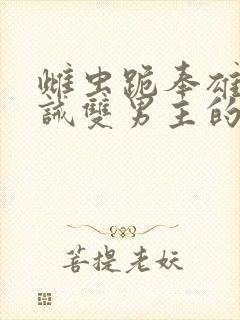 雌虫跪奉雄
誡雙男主的
菩提老妖